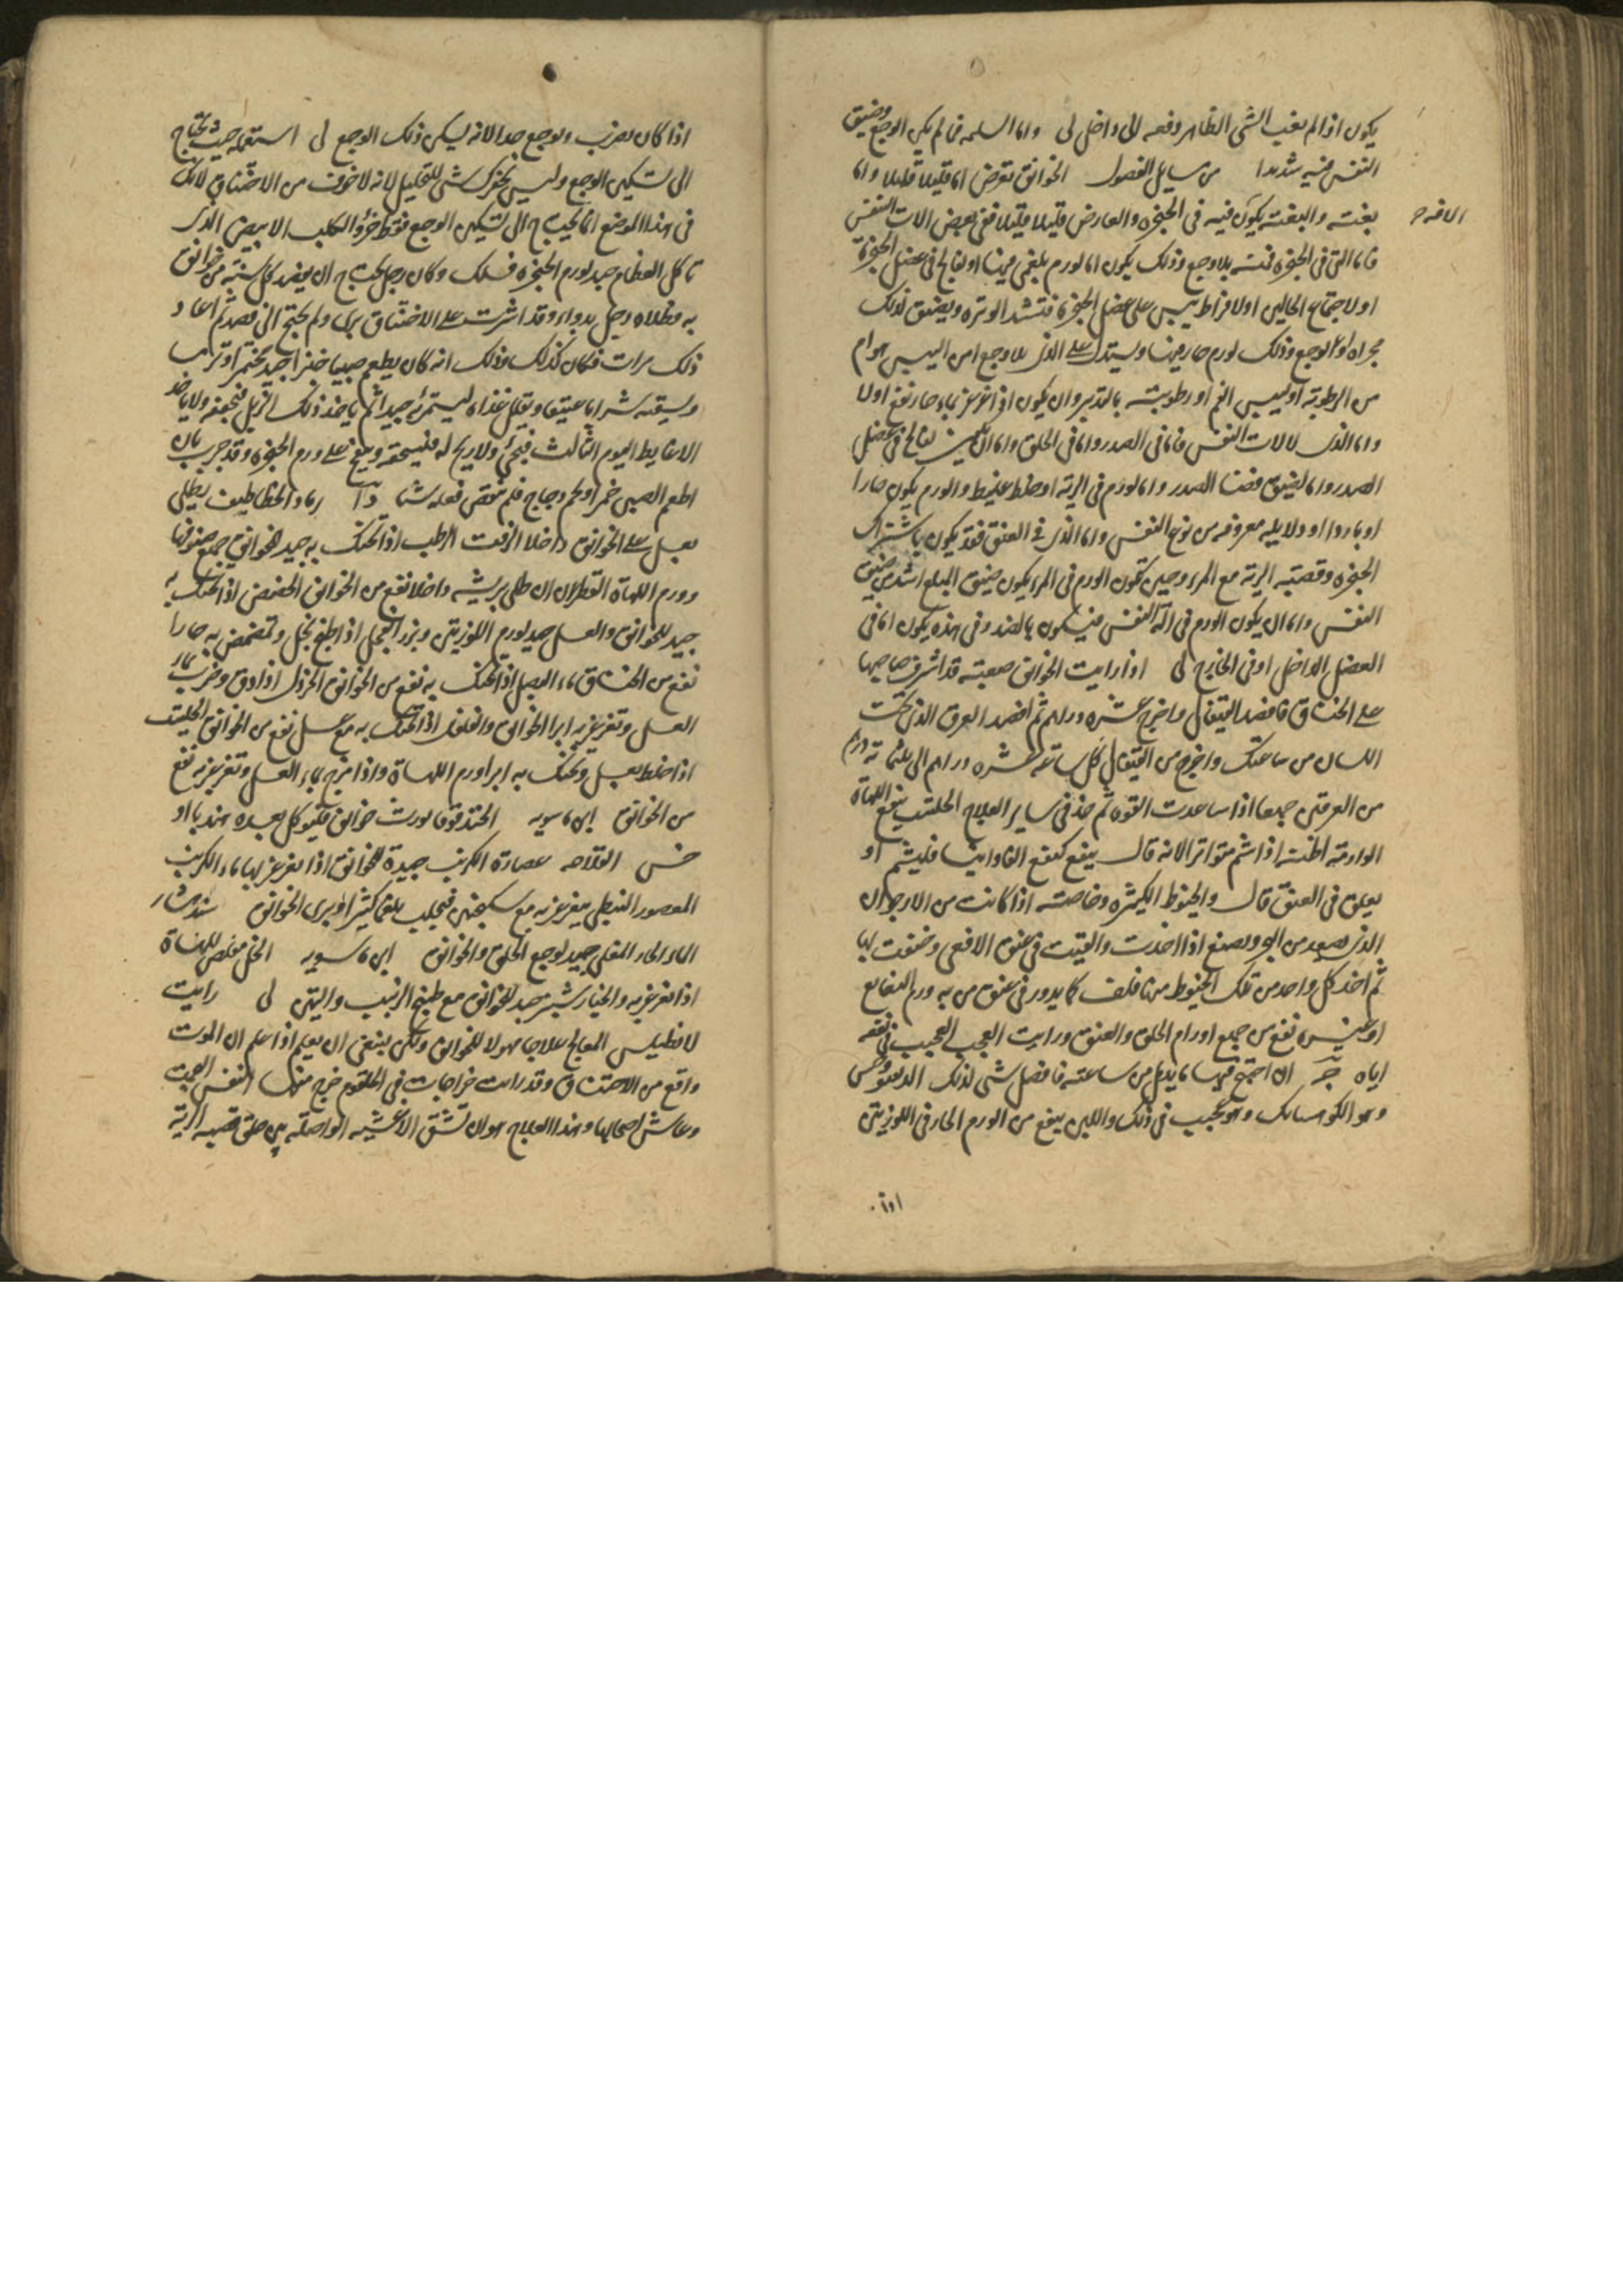 يكون اذا لم يغيب الشى الظاهر دفعه الى داخل لى واما السلمه فما لم يكن الوجع وضيق
النفس فيه شديدا من مسايل الفصول الخوانيق تعرض اما قليلا قليلا واما
بغتة والبغتة يكون فيه فى الحنجره والعارض قليلا قليلا ففى بعض الات النفس
فاما التى فى الحنجره فمنه بلا وجع وذلك يكون اما لورم بلغمى فيها او لفالج فى عضل الحنجرة
او لاجتماع الحالين او لافراط يبس على عضل الحنجرة فتشتد الوتره ويضيق لذلك
مجراه او مع الوجع وذلك لورم حار فيها ويستدل على الذى بلا وجع امن اليبس هو ام
من الرطوبة اوليبس الفم او رطوبته بالتدبير وان يكون اذا غرغر بماء حار نفع اولا
واما الذى لالات النفس فاما فى الصدر واما فى الحلق واما التى لفالج فى عضل
الصدر واما لضيق فضا الصدر واما لورم فى الرية او خلط غليظ والورم يكون حارا
او باردا او ودلايله معروفه من نوع النفس واما الذى فى العنق فقد يكون باشتراك
الحنجره وقصبة الرية مع المرى وحين تكون الورم فى المرى يكون ضيق المبلع اشد من ضيق
النفس واما ان يكون الورم فى آلة النفس فيكون بالضد وفى هذه يكون اما فى
العضل الداخل او فى الخارج لى اذا رايت الخوانيق صعبة قد اشرف صاحبها
على الخناق فافصد القيفال واخرج عشره دراهم ثم افصد العرق الذى تحت
اللسان من ساعتك واخرج من القيفال كل ساعة عشره دراهم الى ثلثمائة درهم
من العرقين جميعا اذا ساعدت القوه ثم خذ فى ساير العلاج الحلتيت ينفع اللهاة
الوارمة اظنه اذا شم متواترا لانه قال ينفع كنفع الفاوانيا فليشم او
يعلق فى العنق قال والخيوط الكثيره وخاصة اذا كانت من الارجوان
الذى يصعد من البحر ويصبغ اذا اخذت والقيت فى عنق الافعى وخنقت بها
ثم اخذ كل واحد من تلك الخيوط منها فلف كما يدور فى عنق من به ورم النغانغ
او غيره نفع من جميع اورام الحلق والعنق ورايت العجب العجيب فى نفعه
اياه ج ان احتيج فيها ما يدمل من ساعته فافضل شى لذلك
وهو وهو عجيب فى ذلك واللبن ينفع من الورم الحار فى اللوزيتن
الافه
اذا
اذا كان يضرب ويوجع جدا لانه يسكن ذلك الوجع لى استعمله حيث تحتاج
الى تسكين الوجع وليس بجنزك شى للتحليل لانه لا خوف من الاختناق لانك
فى هذا الموضع انما تحتاج الى تسكين الوجع فقط خرؤ الكلب الابيض الذى
تاكل العظام جيد لورم الحنجره وكان رجل يحتاج ان يفصد كل سنة من خوانيق
به فطلاه رجل بدواء وقد اشرف على الاختناق برى ولم يحتج الى فصد ثم اعاد
ذلك مرات فكان كذلك وذلك انه كان يطعم صبيا خبزا جيد مختمر او ترمس
ويسقيه شرابا عتيقا ويقلل غذاه ليستمرئه جيدا ثم ياخذ ذلك الزبل فيجففه ولا ياخذ
الا غايط اليوم الثالث فيجئ ولا ريح له فيسحقه وينفخ على ورم الحنجره وقد جرب بان
اطعم الصبى خمرا ولحم دجاج فلم ينقص فعله شيا د رماد الخطاطيف يطلى
بعسل على الخوانيق داخلا الزفت الرطب اذا تحنك به جيد للخوانيق جميع صنوفها
وورم اللهاة القطران ان طلى بريشه داخلا نفع من الخوانيق الحضض اذا تحنك به
جيد للخوانيق والعسل جيد لورم اللوزيتن وبزر الفجل اذا طبخ بخل وتمضمض به حارا
نفع من الخناق ماء البصل اذا تحنك به نفع من الخوانيق الخردل اذا دق وضرب بماء
العسل وتغرغر به ابرا الخوانيق والفلفل اذا تحنك به مع عسل نفع من الخوانيق الحلتيت
اذا خلط بعسل وتحنك به ابرا ورم اللهاة واذا مزج بماء العسل وتغرغر به نفع
من الخوانيق ابن ماسويه الحندقوقا يورث خوانيق فليوكل بعده هندبا او
خس الفلاحه عصارة الكرنب جيدة للخوانيق اذا تغرغر بها ماء الكرنب
المعصور النبطى يتغرغر به مع سكنجبين فيجلب بلغما كثيرا ويبرى الخوانيق بندهشار
الماء الحار المغلى جيد لوجع الحلق والخوانيق ابن ماسويه الخل مقلص للهاة
اذا تغرغر به والخيار شنبر جيد للخوانيق مع طبيخ الزبيب والتين لى رايت
لانطيلس المعالج علاجا مهولا للخوانيق ولكن ينبغى ان يعلم اذا علم ان الموت
واقع من الاختناق وقد رايت خراجات فى الحلقوم خرج منها النفس الصوت
وعاش اصحابها وهذا العلاج هو ان تشق الاغشيه الواصلة بين حلق قصبه الرية